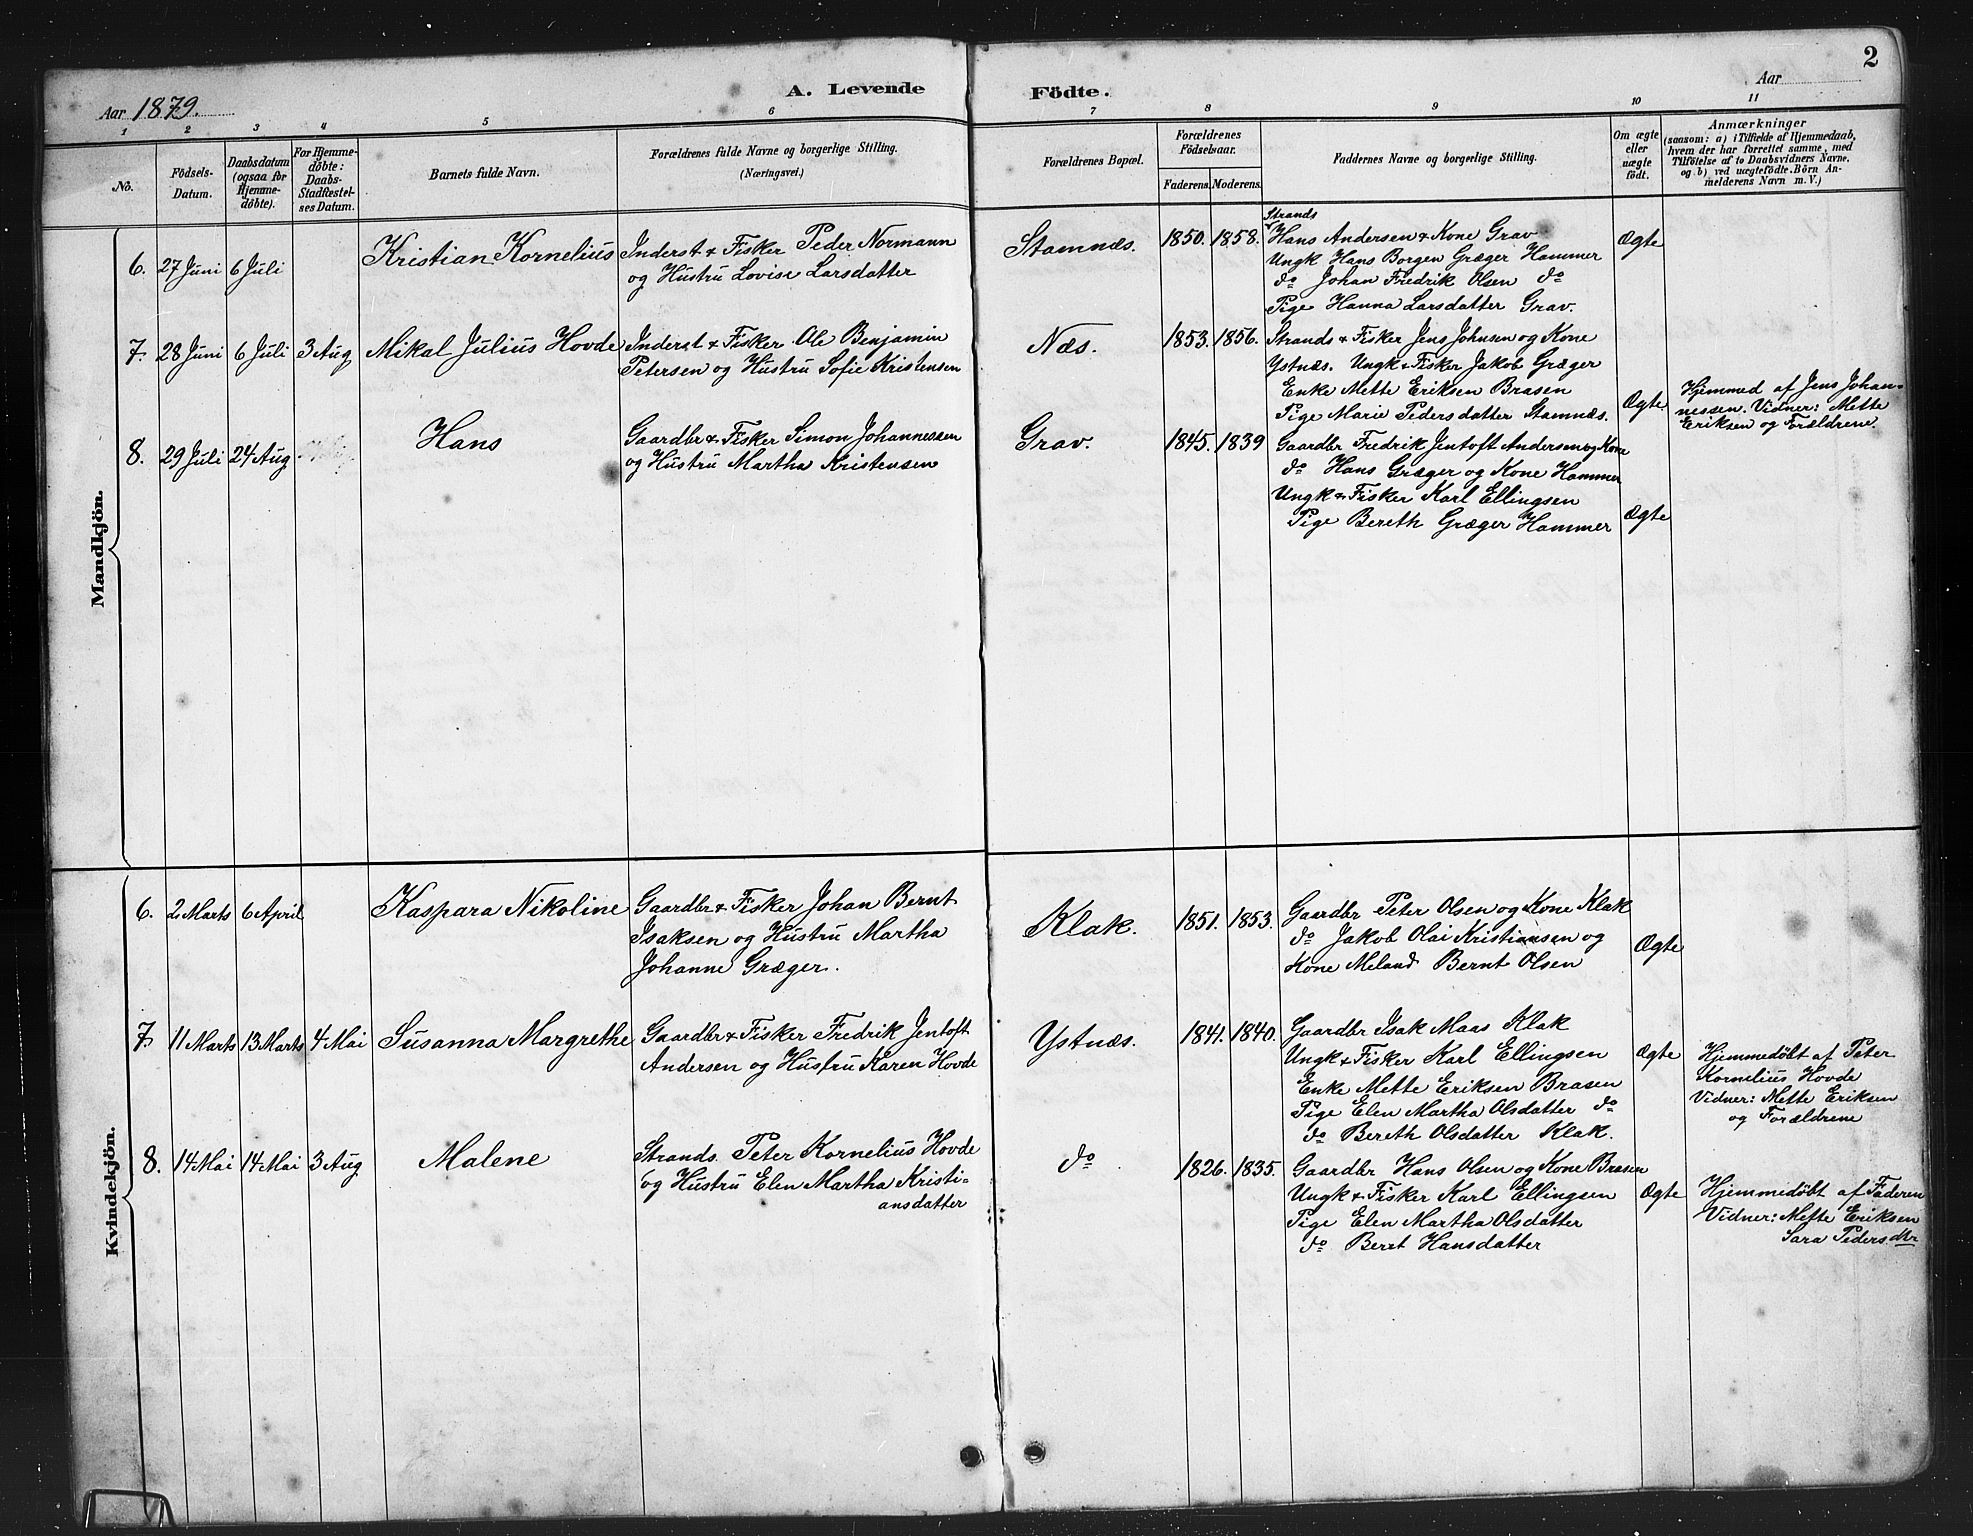 2
Aar 1879.
A. Levende Födte.
Aar
1 2 3 4 5 6 7 8 9 10 11
No.
Födsels-Datum.
Daabsdatum (ogsaa for Hjemme-döbte).
For Hjemme-döbte: Daabs-Stadfæstel-ses Datum.
Barnets fulde Navn.
Forældrenes fulde Navne og borgerlige Stilling.
(Næringsvei.)
Forældrenes Bopæl.
Forældrenes Födselsaar.
Faderens. Moderens.
Faddernes Navne og borgerlige Stilling.
Om ægte eller uægte födt.
Anmærkninger
(saasom: a) i Tilfælde af Hjemmedaab,
hvem der har forrettet samme, med
Tilföielse af to Daabsvidners Navne.
og b) ved uægtefödte Börn An-
melderens Navn m. V.)
Mandkjön.
6. 27 Juni 6 Juli
Kristian Kornelius
Inderst & Fisker Peder Normann
og Hustru Lovise Larsdatter
Stamnæs.
1850. 1858.
Strands
Hans Andersen & Kone Grav
Ungk Hans Borgen Græger Hammer
do Johan Fredrik Olsen do
Pige Hanna Larsdatter Grav.
Ægte
7. 28 Juni 6 Juli 3 Aug
Mikal Julius Hovde
Inderst & Fisker Ole Benjamin
Petersen og Hustru Sofie Kristensen
Næs.
1853. 1856.
Strands & Fisker Jens Johnsen og Kone
Ystnæs. Ungk & Fisker Jakob Græger
Enke Mette Eriksen Brasen
Pige Marie Pedersdatter Stamnæs.
Ægte
Hjemmed af Jens Johan-
nessen. Vidner: Mette
Eriksen og Frældrene
8. 29 Juli 24 Aug
Hans
Gaardbr & Fisker Simon Johannessen
og Hustru Martha Kristensen
Grav.
1845. 1839
Gaardbr Fredrik Jentoft Andersen og Kone
do Hans Græger og Kone Hammer
Ungk & Fisker Karl Ellingsen
Pige Bereth Græger Hammer
Ægte
Kvindekjön.
6. 2 Marts 6 April
Kaspara Nikoline
Gaardbr & Fisker Johan Bernt
Isaksen og Hustru Martha
Johanne Græger.
Klak.
1851. 1853.
Gaardbr Peter Olsen og Kone Klak
do Jakob Olai Kristiansen og
Kone Meland Bernt Olsen
Ægte
7. 11 Marts 13 Marts 4 Mai
Susanna Margrethe
Gaardbr & Fisker Fredrik Jentoft
Andersen og Hustru Karen Hovde
Ystnæs.
1841. 1840.
Gaardbr Isak Maas Klak
Ungk & Fisker Karl Ellingsen
Enke Mette Eriksen Brasen
Pige Elen Martha Olsdatter do
do Bereth Olsdatter Klak.
Ægte
Hjemmedöbt af Peter
Kornelius Hovde
Vidner: Mette Eriksen
og Forældrene
8. 14 Mai 14 Mai 3 Aug
Malene
Strands. Peter Kornelius Hovde
og Hustru Elen Martha Kristi-
ansdatter
do
1826. 1835.
Gaardbr Hans Olsen og Kone Brasen
Ungk & Fisker Karl Ellingsen
Pige Elen Martha Olsdatter
do Beret Hansdatter
Ægte
Hjemmedöbt af Faderen
Vidner: Mette Eriksen
Sara Pedersdtr